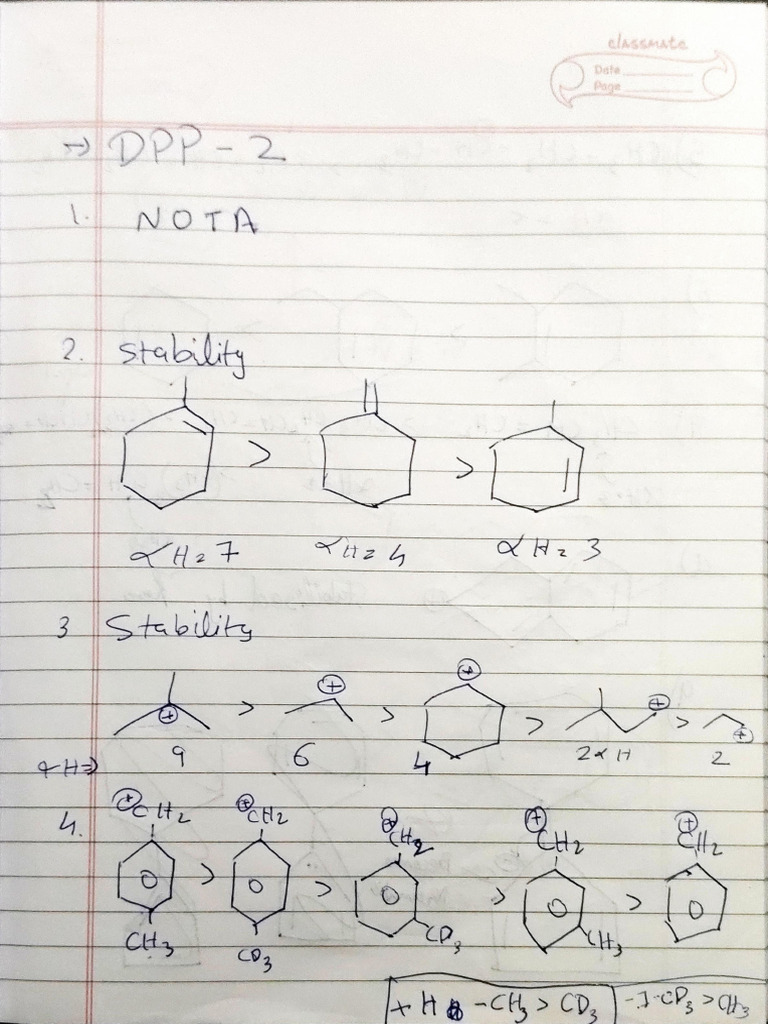 classmate
Date
Page
→ DPP - 2
1. NOTA
2. Stability
> >
αH = 7 αH = 4 αH = 3
3 Stability
⊕ > ⊕ > ⊕ > ⊕ > ⊕
αH ⇒ 9 6 4 2αH 2
4. ⊕CH2 > ⊕CH2 > ⊕CH2 > ⊕CH2 > ⊕CH2
CH3 CD3 CD3 CH3
+ H -CH3 > CD3 -I -CD3 > CH3